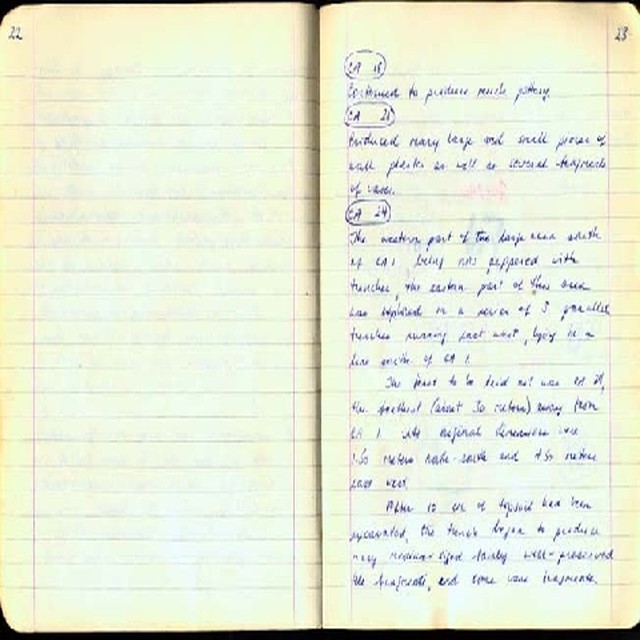 22
23
CA 18
Continued to produce much pottery.
CA 21
Produced many large and small pieces of
wall plaster as well as several fragments
of vases.
CA 24
The western part of the large area south
of CA 1, being now peppered with
trenches, the eastern part of this area
was explored in a series of 3 parallel
trenches running east west, lying in a
line south of CA 1.
The first to be laid out was CA 24,
the furthest (about 30 meters) away from
CA 1. Its original dimensions were
1.50 meters north-south and 4.50 meters
east west.
After 10 cm of topsoil had been
excavated, the trench began to produce
many medium-sized fairly well-preserved
tile fragments, and some vase fragments.